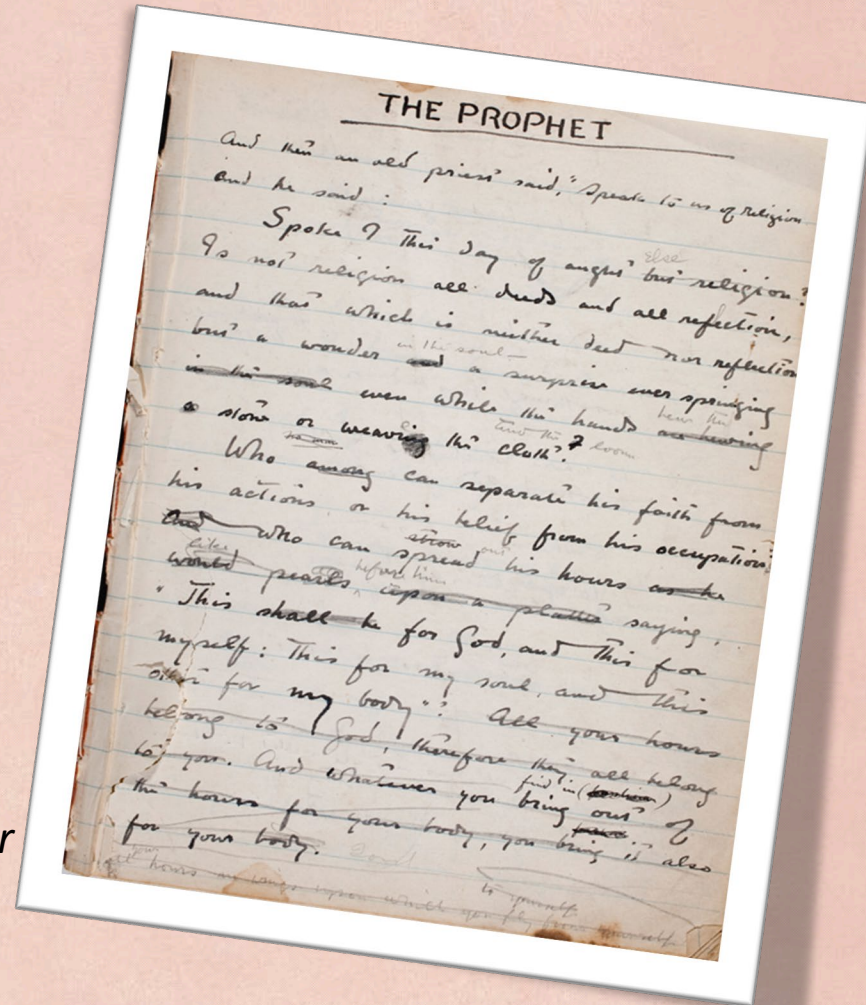 THE PROPHET
And then an old priest said, "Speak to us of religion
and he said :
Spoke I this day of aught but religion?
else
Is not religion all deeds and all reflection,
and that which is neither deed nor reflection
in the soul
but a wonder and a surprise ever springing
in the soul even while the hands are hewing
hew the
a stone or weaving the cloth?
tend the loom
no man
Who among can separate his faith from
his actions or his belief from his occupations;
strow
And who can spread his hours as he
out
like
before him
would pearls upon a platter saying,
"This shall be for God, and this for
myself: This for my soul, and this
other for my body"? All your hours
belong to God, therefore they all belong
to you. And whatever you bring out of
find in
the hours for your body, you bring it also
for your body.
your
all hours wings upon which you fly from
to yourself
r